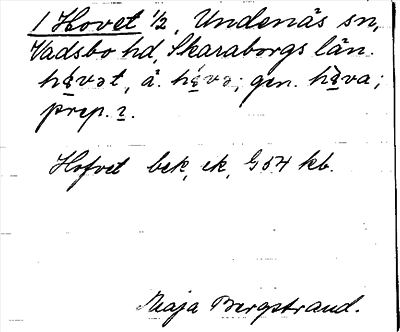 1 Hovet 1/2, Undenäs sn,
Vadsbo hd, Skaraborgs län.
hävət, å. hävə; gen. häva;
prep. 2.
Hofvet bek, ek, G 54 kb.
Maja Bergstrand.